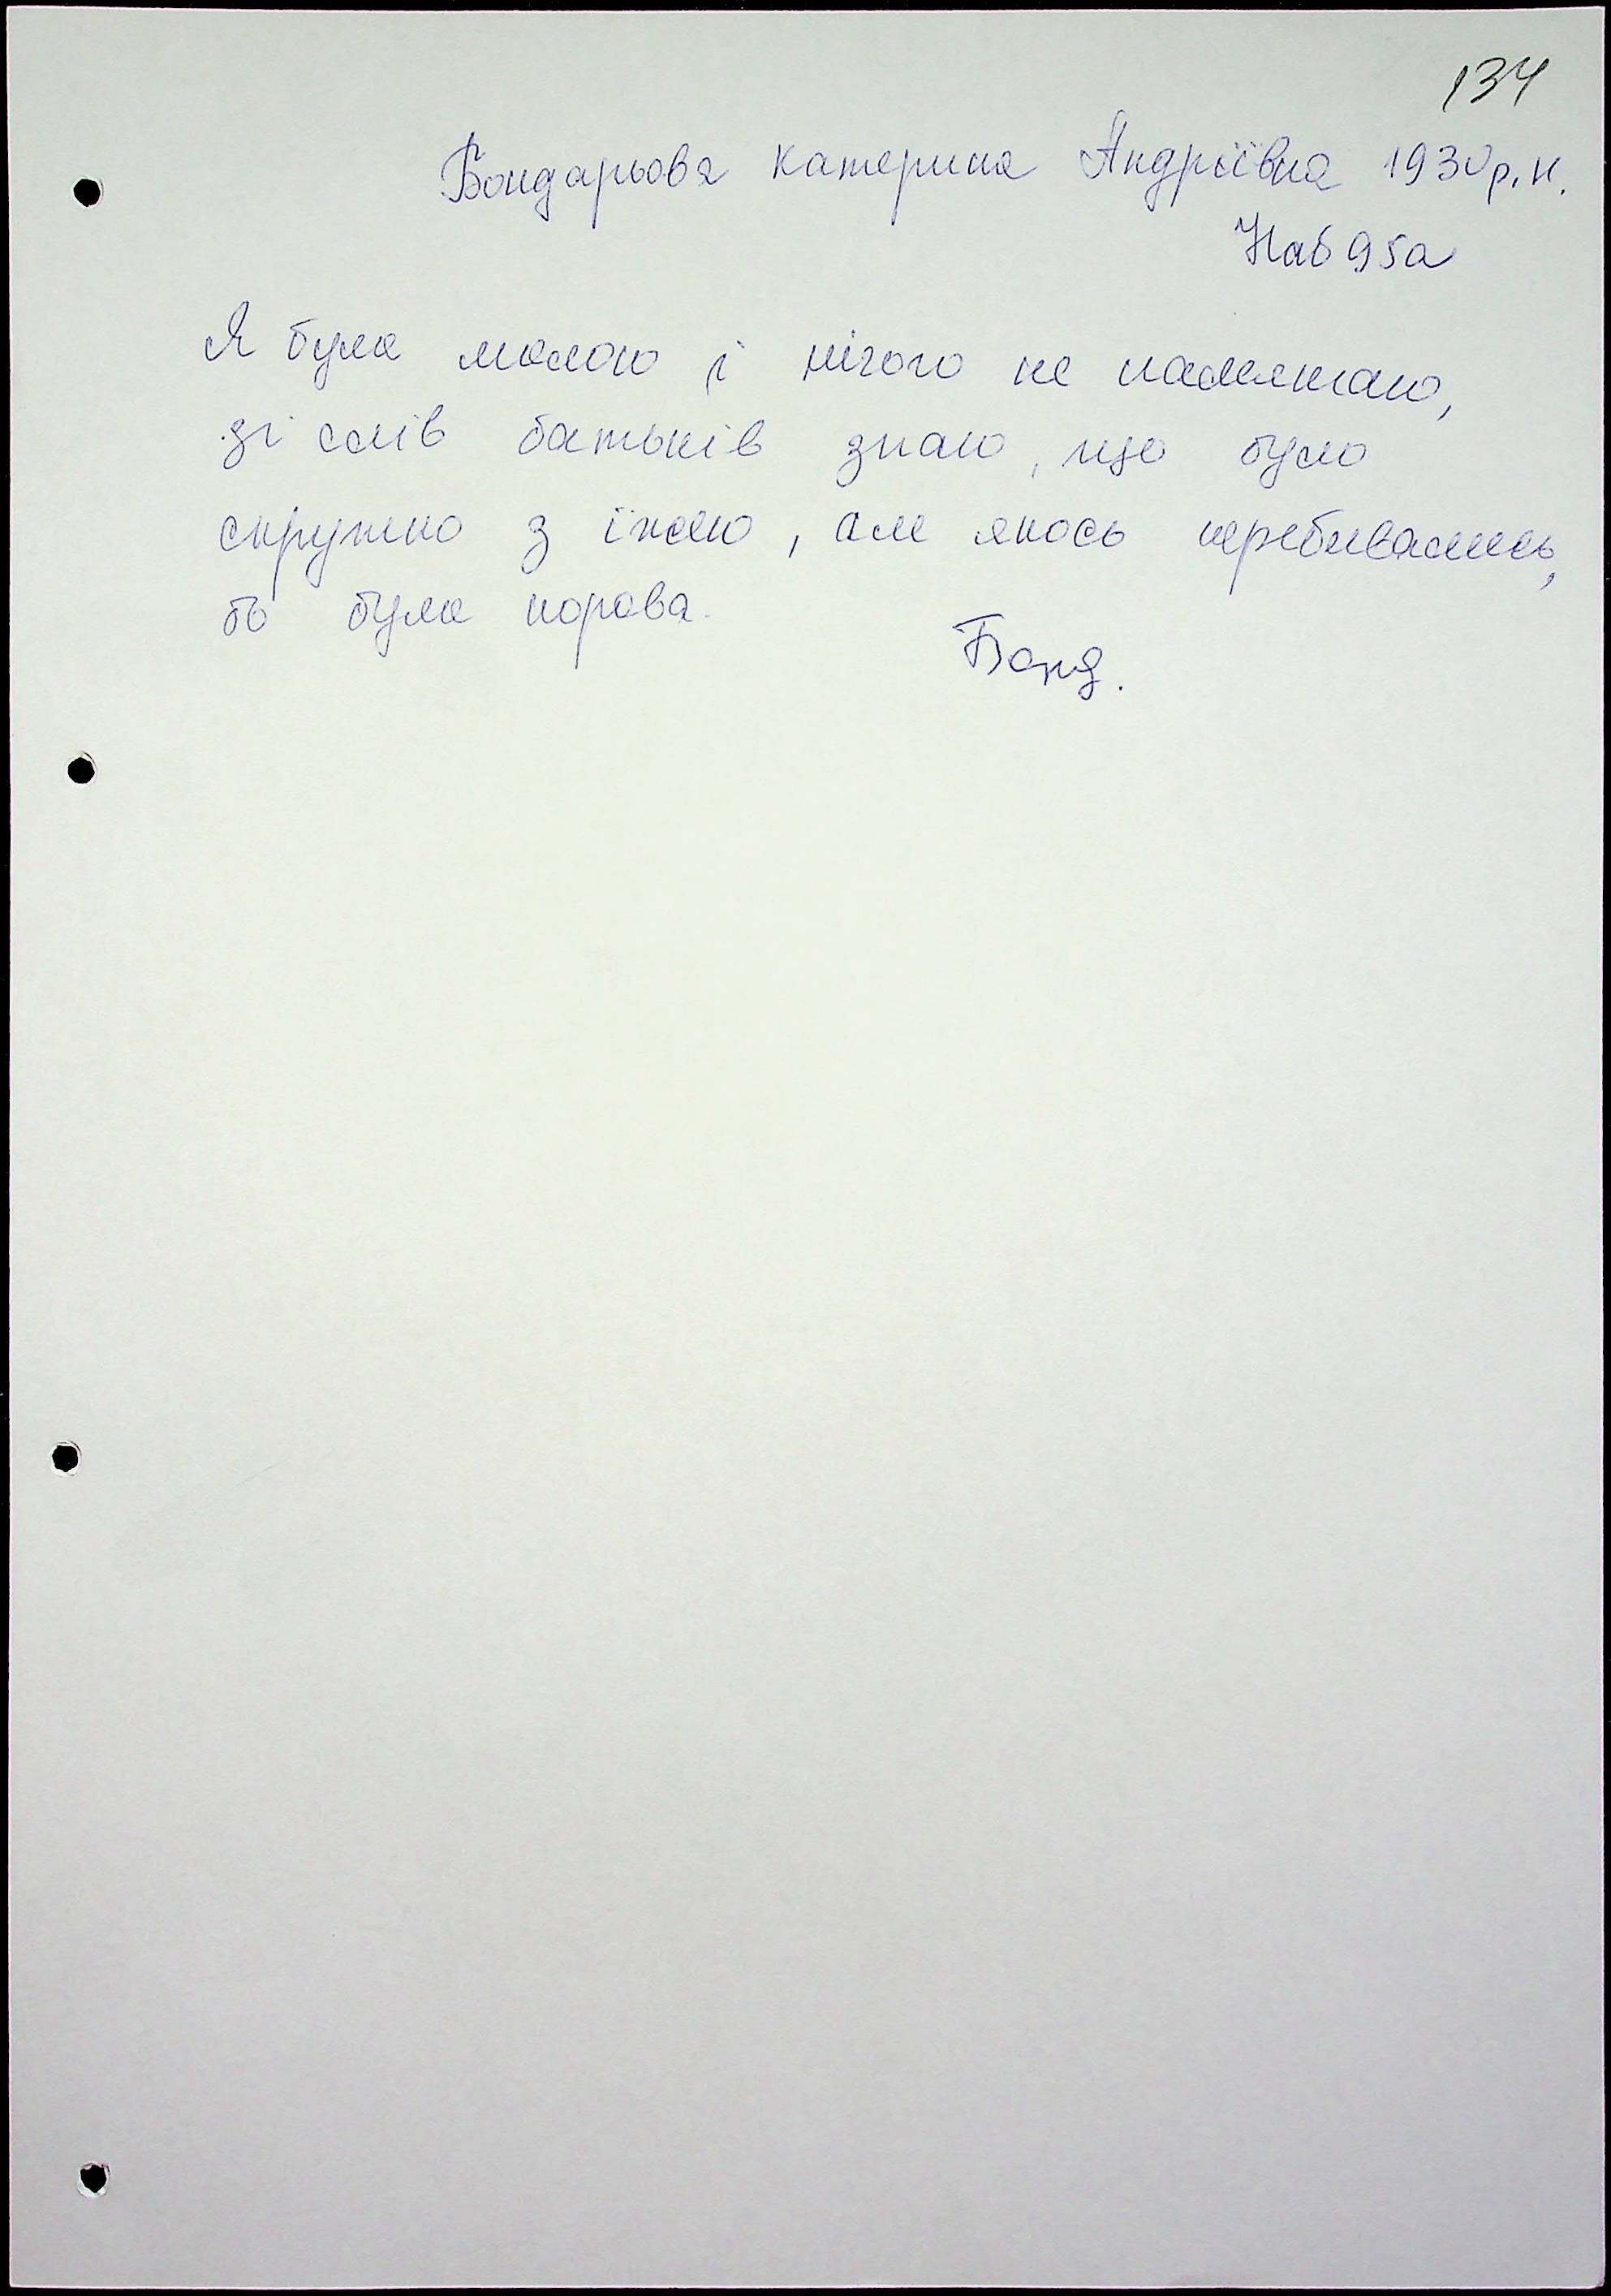 134
Бондарьова Катерина Андріївна 1930 р.н.
Наб 95а
Я була малою і нічого не памятаю,
зі слів батьків знаю, що було
скрутно з їжею, але якось перебивались,
бо була корова.
Бонд.